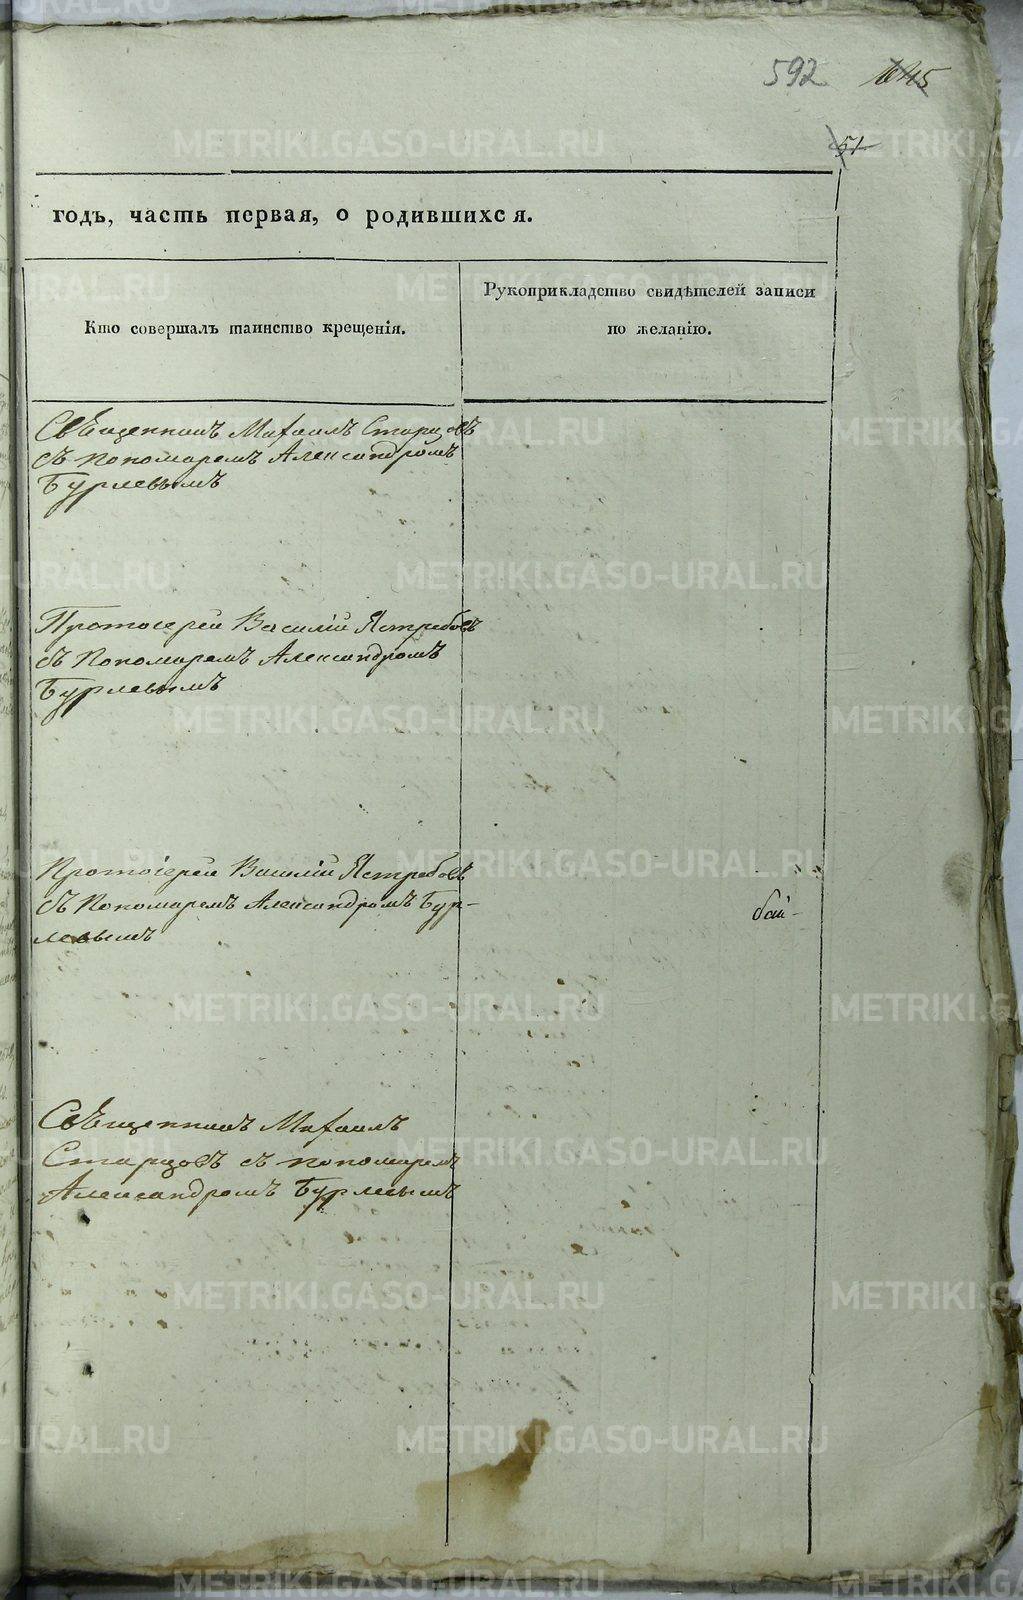 592 1045
51
годъ, часть первая, о родившихся.
Кто совершалъ таинство крещенія.
Рукоприкладство свидѣтелей записи
по желанію.
Священникъ Михаилъ Старцовъ
съ пономаремъ Александромъ
Бурлевымъ
Протоіерей Василій Ястребовъ
съ Пономаремъ Александромъ
Бурлевымъ
Протоіерей Василій Ястребовъ
съ Пономаремъ Александромъ Бур-
левымъ
бай-
Священникъ Михаилъ
Старцовъ съ пономаремъ
Александромъ Бурлевымъ
METRIKI.GASO-URAL.RU